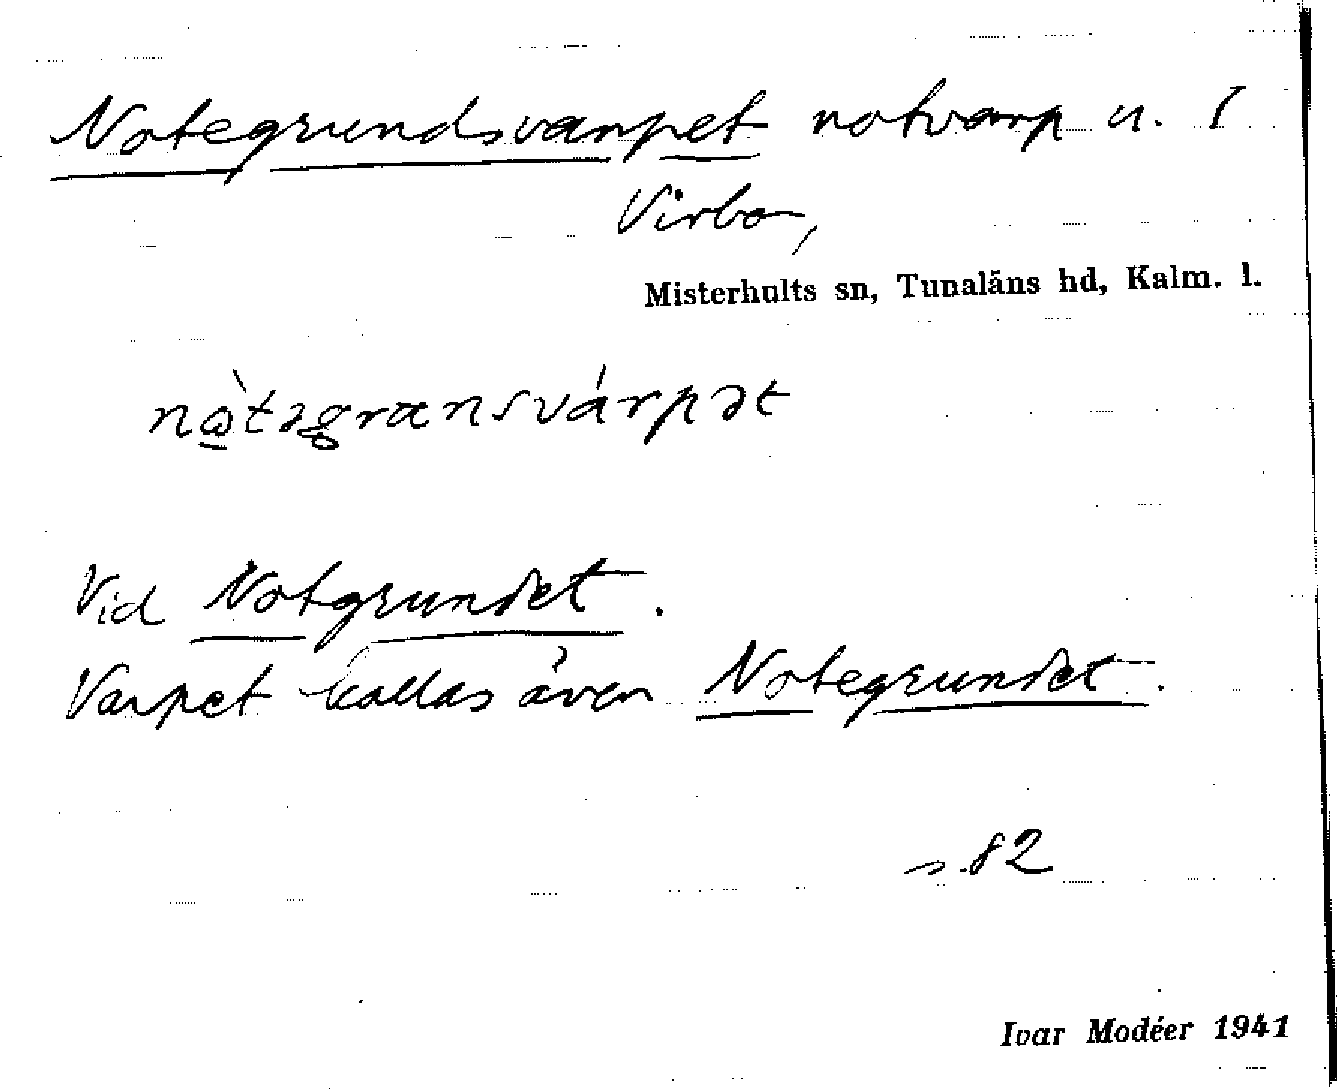 Notegrundsvarpet notvarp u. I
Virbo,
Misterhults sn, Tunaläns hd, Kalm. l.
Vid Notgrundet.
Varpet kallas även Notegrundet.
s. 82
Ivar Modéer 1941